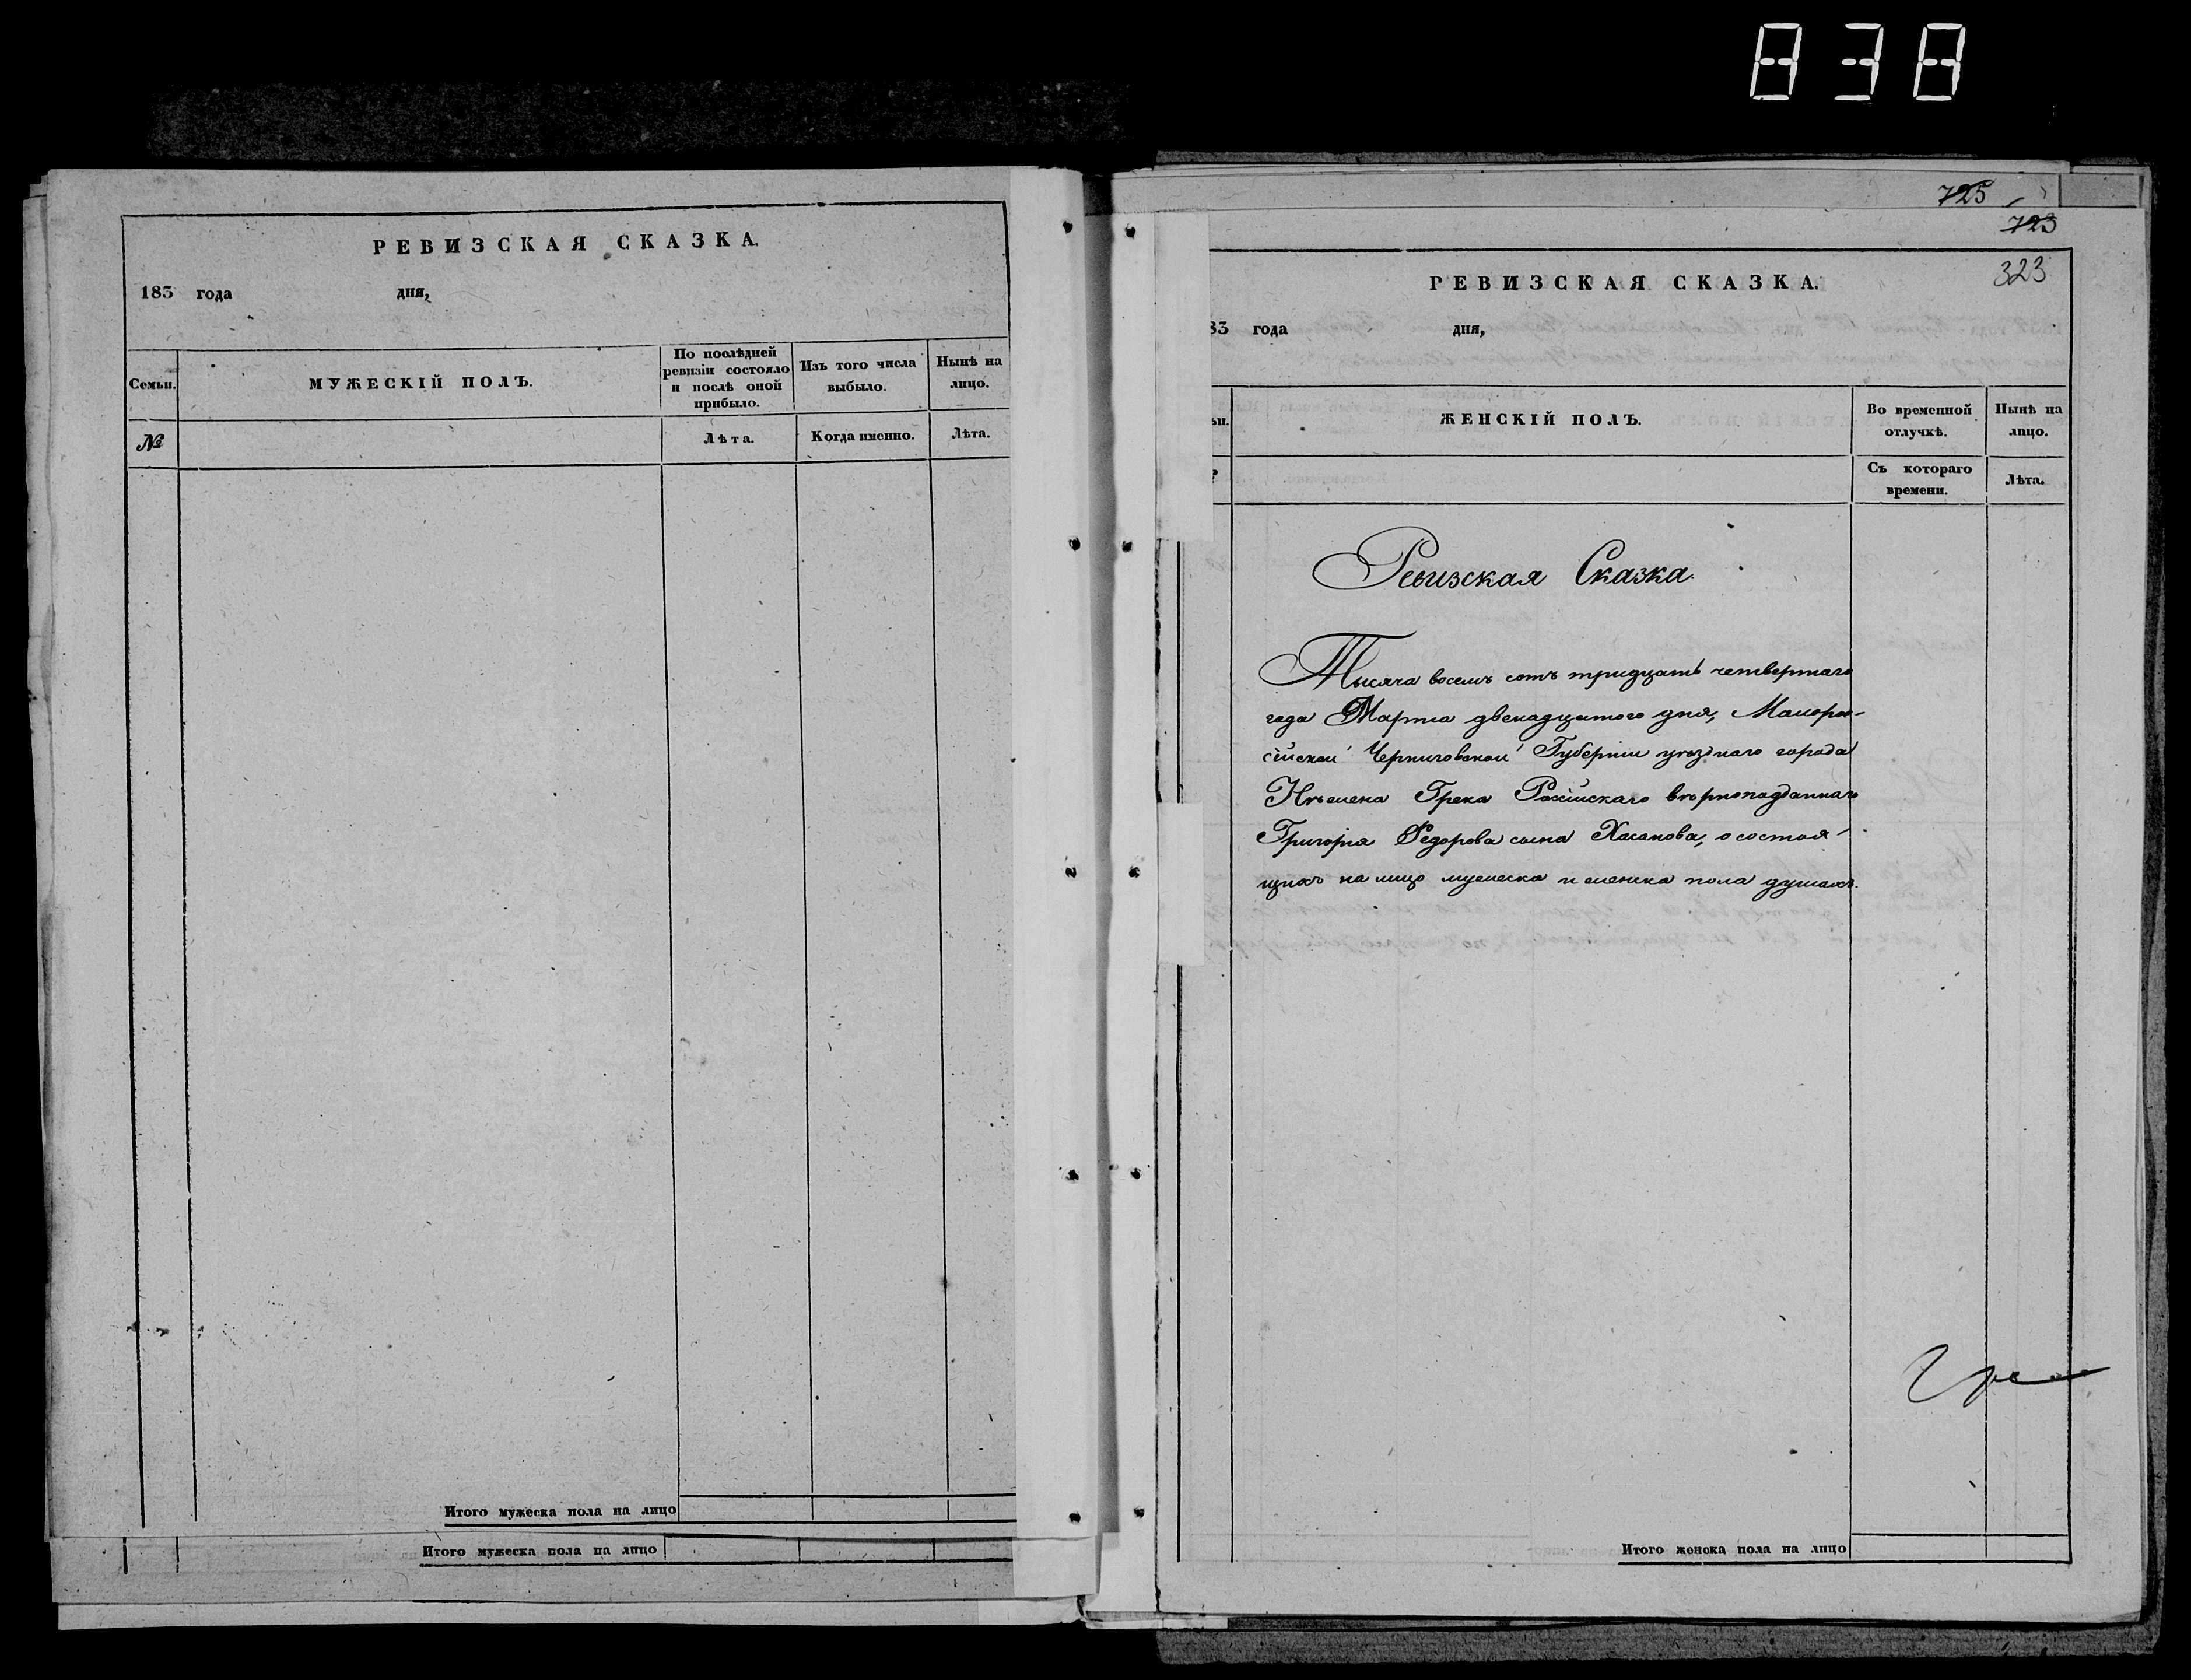 838
РЕВИЗСКАЯ СКАЗКА.
183 года дня,
Семьи.
МУЖЕСКІЙ ПОЛЪ.
По послѣдней
ревизіи состояло
и послѣ оной
прибыло.
Изъ того числа
выбыло.
Нынѣ на
лицо.
№
Лѣта.
Когда именно.
Лѣта.
Итого мужеска пола на лицо
Итого мужеска пола на лицо
725
723
323
РЕВИЗСКАЯ СКАЗКА.
83 года дня,
ьи.
ЖЕНСКІЙ ПОЛЪ.
Во временной
отлучкѣ.
Нынѣ на
лицо.
Съ котораго
времени.
Лѣта.
Ревизская Сказка.
Тысяча восемъ сотъ тридцать четвертаго
года Марта двенадцатого дня, Малорос-
сійской Черниговской Губерніи уезднаго города
Нѣжена Грека Россійскаго вѣрноподданнаго
Григорія Федорова сына Хасанова, о состоя-
щихъ на лицо мужеска и женска пола душахъ.
Итого женска пола на лицо